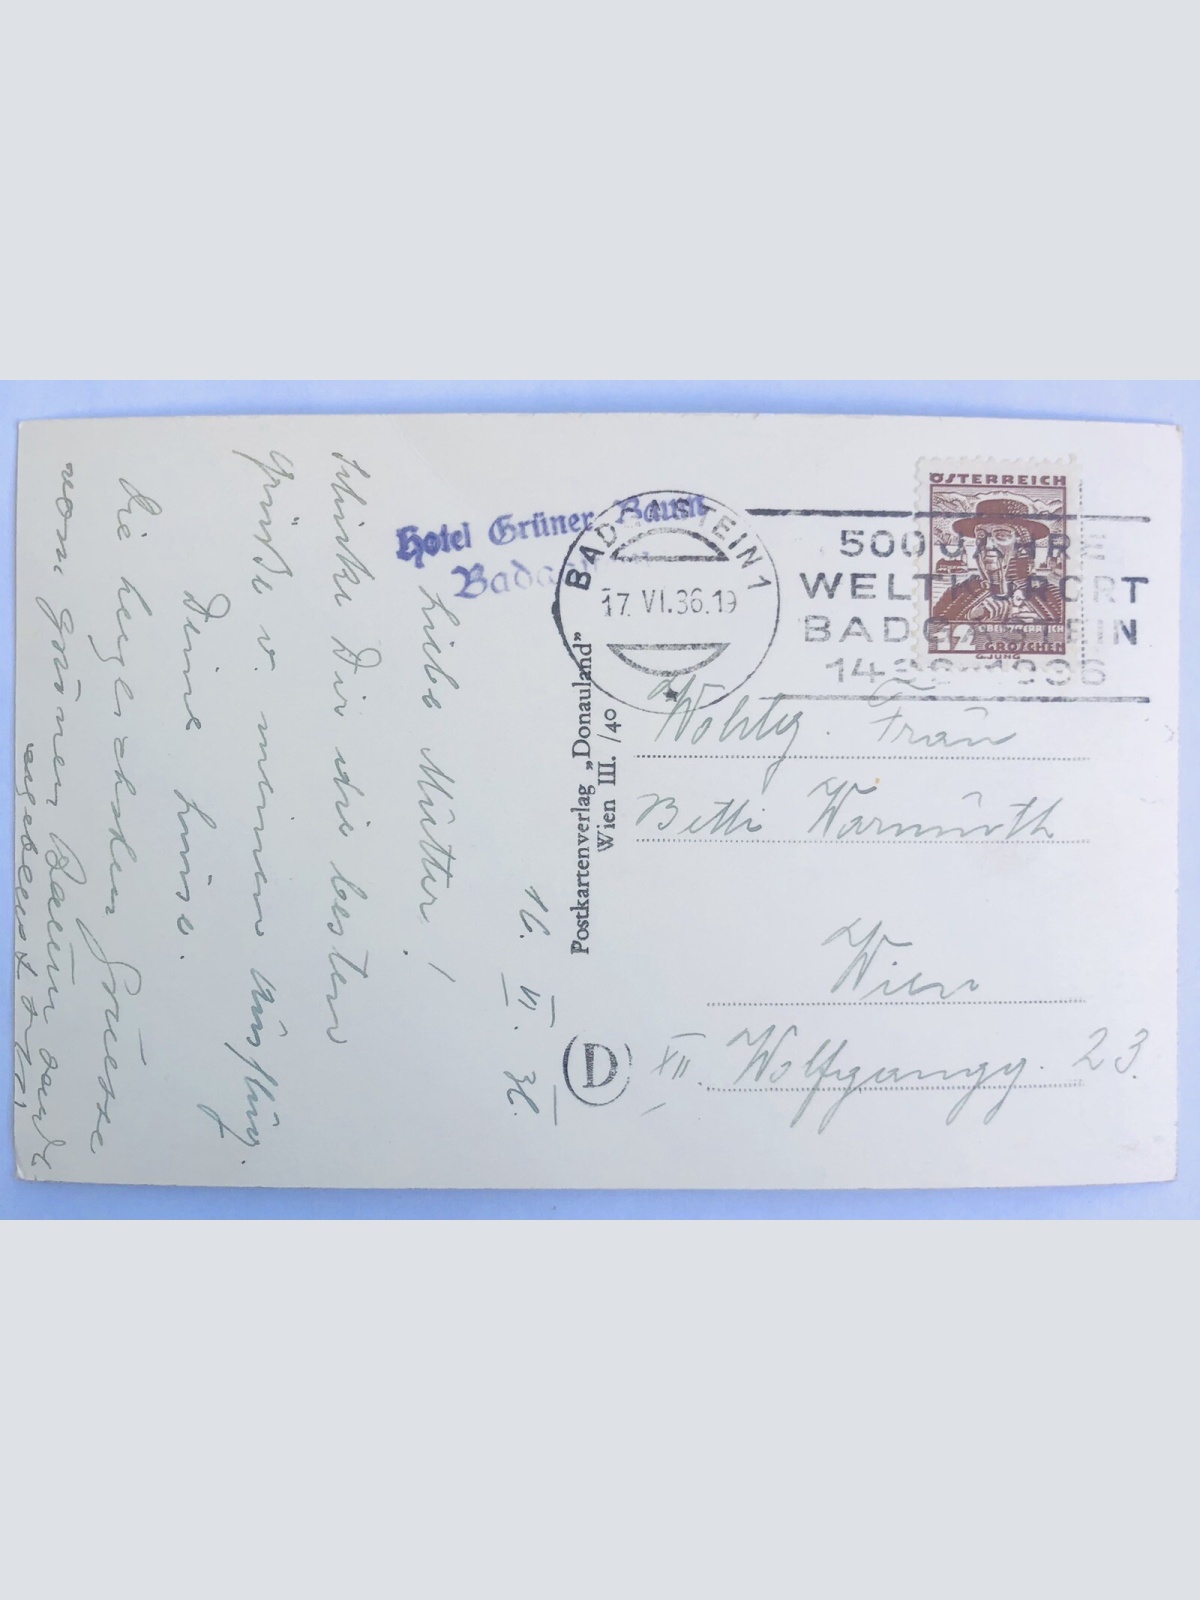 16. VI. 36.
Liebe Mutter!
Schicke Dir die besten
Grüße v. meinem Ausflug.
Deine Luise.
Die herzlichsten Grüsse
vom grünen Baum
Hotel Grüner Baum
Bad
BADGASTEIN 1
17. VI. 36. 19
500 JAHRE
WELTKURORT
BADGASTEIN
1436-1936
ÖSTERREICH
12
OBERÖSTERREICH
GROSCHEN
G. JUNG
Postkartenverlag „Donauland”
Wien III. /40
D
Wohlg. Frau
Betti Warmuth
Wien
XII. Wolfgangg. 23.